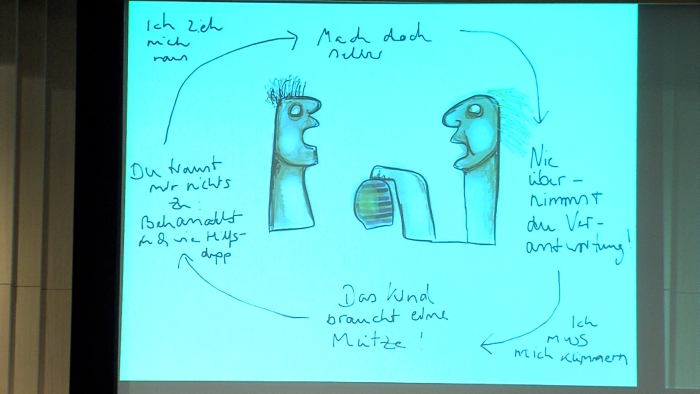 Ich zieh
mich
raus
Mach doch
selber
Nie
über-
nimmst
du Ver-
antwortung!
Ich
muss
mich kümmern
Das Kind
braucht eine
Mütze!
Du traust
mir nichts
zu:
Behandelst
wie Hilfs-
depp